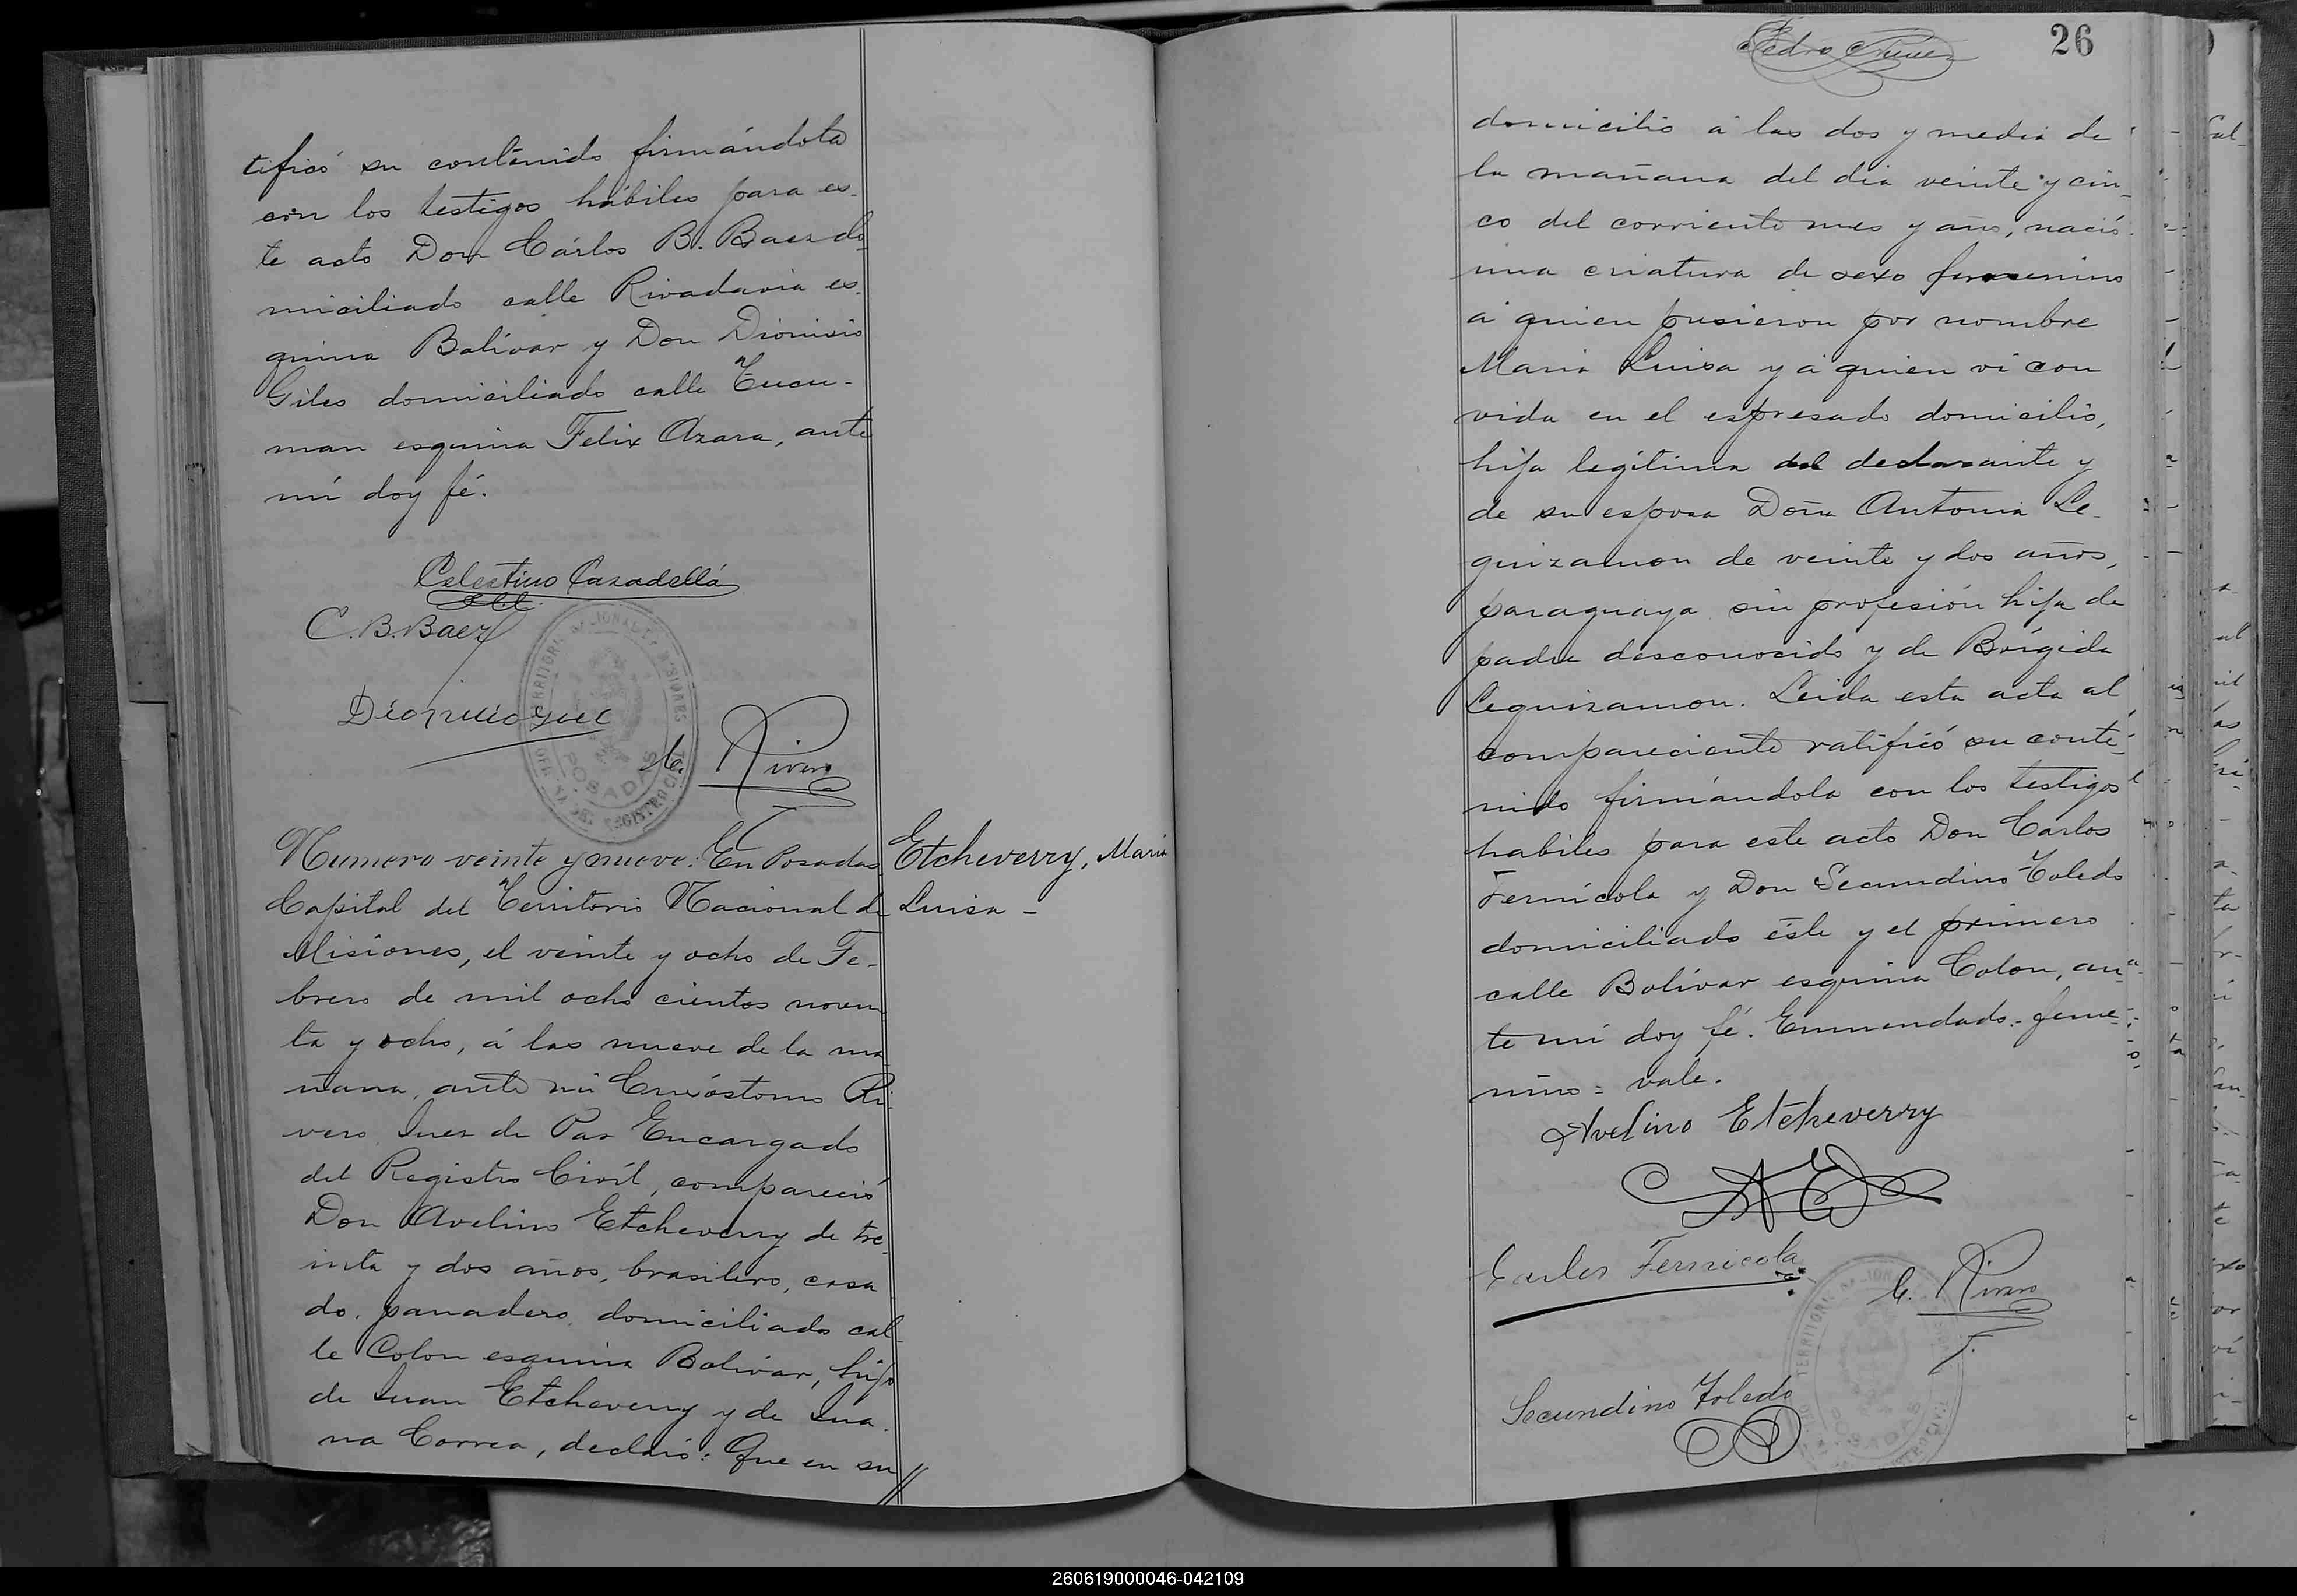 tificó su contenido firmándola
con los testigos hábiles para es-
te acto Don Cárlos B. Baez do-
miciliado calle Rivadavia es-
quina Bolívar y Don Dionisio
Giles domiciliado calle Tucu-
man esquina Felix Azara, ante
mí doy fé.
Celestino Casadellá
C. B. Baez
TERRITORIO NACIONAL DE MISIONES
POSADAS
REGISTRO CIVIL
C. Rivero
Numero veinte y nueve: En Posadas
Capital del Territorio Nacional de
Misiones, el veinte y ocho de Fe-
brero de mil ocho cientos noven
ta y ocho, á las nueve de la ma
ñana, ante mi Crisóstomo Ri-
vero Juez de Paz Encargado
del Registro Civíl, compareció
Don Avelino Etcheverry de tre-
inta y dos años, brasilero, casa
do, panadero, domiciliado cal-
le Colon esquina Bolívar, hijo
de Juan Etcheverry y de Jua-
na Correa, declaró: Que en su //
Etcheverry, Maria
Luisa -
26
Pedro
domicilio á las dos y media de
la mañana del dia veinte y cin-
co del corriente mes y año, nació
una criatura de sexo femenino
á quien pusieron por nombre
Maria Luisa y á quien ví con
vida en el espresado domicilio,
hija legítima del declarante y
de su esposa Doña Antonia Le-
guizamon de veinte y dos años,
paraguaya sin profesión hija de
padre desconocido y de Brígida
Leguizamon. Leida esta acta al
compareciente ratificó su conte-
nido firmándola con los testigos
habiles para este acto Don Carlos
Fernícola y Don Secundino Toledo
domiciliado éste y el primero
calle Bolívar esquina Colon, an-
te mí doy fé. Enmendado:- feme-
nino = vale.
Avelino Etcheverry
AE
Carlos Fernicola
C. Rivero
Secundino Toledo
TERRITORIO NACIONAL
POSADAS